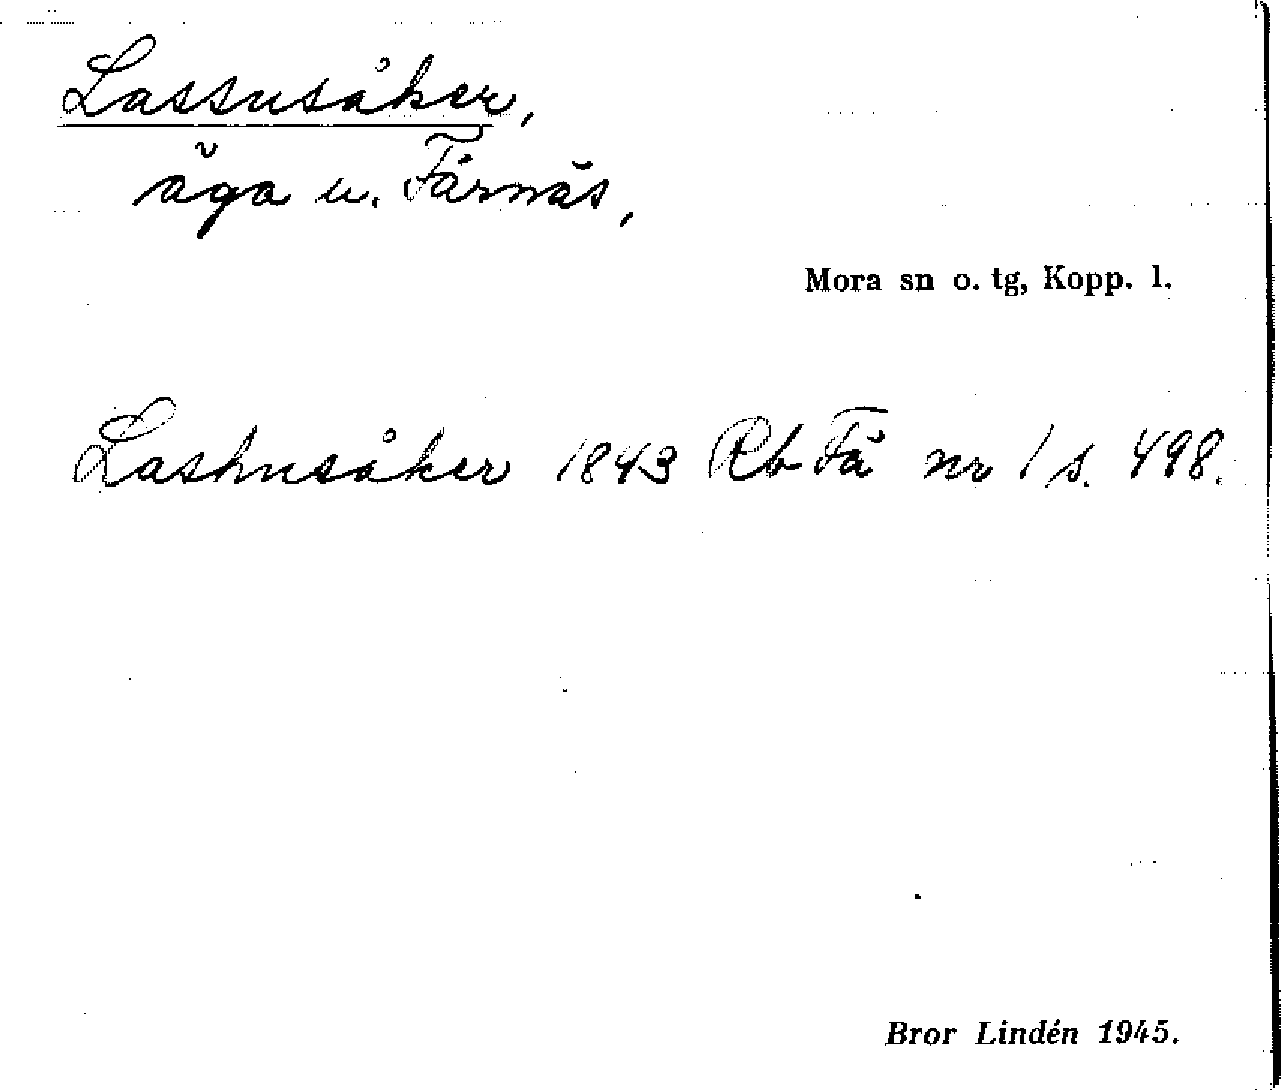 Lassusåker,
äga u. Färnäs,
Mora sn o. tg, Kopp. l.
Lashusåker 1843 Rb Fä nr 1 s. 498.
Bror Lindén 1945.